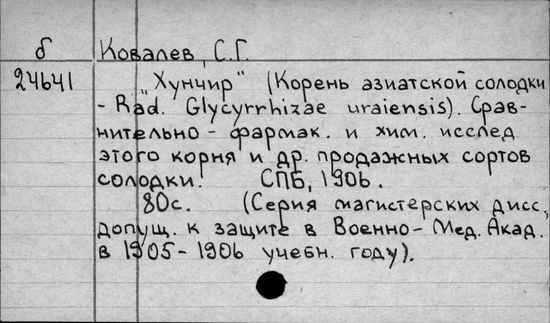 б Ковалев, С.Г.
24641 „Хунчир" (Корень азиатской солодки
- Rad. Glycyrrhizae uraiensis). Срав-
нительно - фармак. и хим. исслед
этого корня и др. продажных сортов
солодки. СПБ, 1906.
80с. (Серия магистерских дисс,
допущ. к защите в Военно-Мед. Акад.
в 1905-1906 учебн. году).